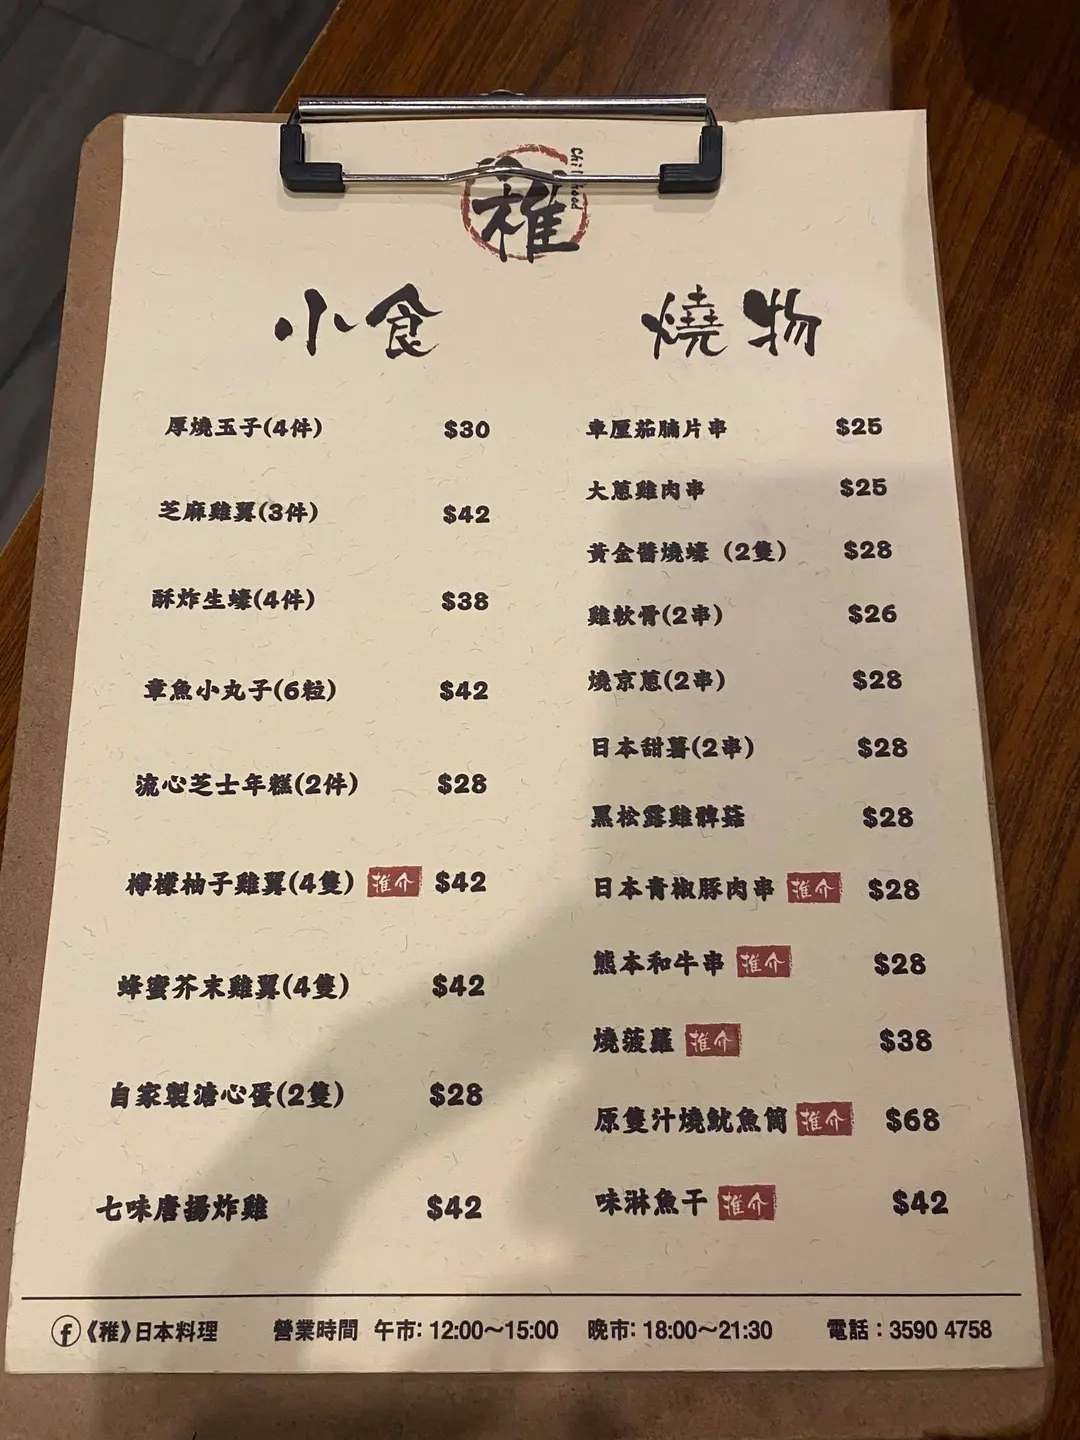 稚
Childhood
小食
厚燒玉子(4件) $30
芝麻雞翼(3件) $42
酥炸生蠔(4件) $38
章魚小丸子(6粒) $42
流心芝士年糕(2件) $28
檸檬柚子雞翼(4隻) 推介 $42
蜂蜜芥末雞翼(4隻) $42
自家製溏心蛋(2隻) $28
七味唐揚炸雞 $42
燒物
車厘茄腩片串 $25
大蔥雞肉串 $25
黃金醬燒蠔（2隻） $28
雞軟骨(2串) $26
燒京蔥(2串) $28
日本甜薯(2串) $28
黑松露雞髀菇 $28
日本青椒豚肉串 推介 $28
熊本和牛串 推介 $28
燒菠蘿 推介 $38
原隻汁燒魷魚筒 推介 $68
味淋魚干 推介 $42
《稚》日本料理 營業時間 午市: 12:00～15:00 晚市: 18:00～21:30 電話：3590 4758